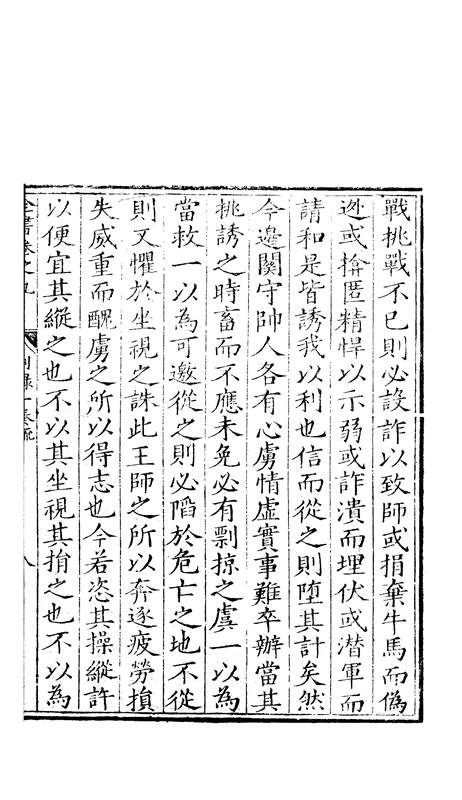 戰挑戰不已則必設詐以致師或捐棄牛馬而偽
逃或揜匿精悍以示弱或詐潰而埋伏或潛軍而
請和是皆誘我以利也信而從之則墮其計矣然
今邊關守帥人各有心虜情虛實事難卒辦當其
挑誘之時畜而不應未免必有剽掠之虞一以為
當救一以為可邀從之則必陷於危亡之地不從
則又懼於坐視之誅此王師之所以奔逐疲勞損
失威重而醜虜之所以得志也今若恣其操縱許
以便宜其縱之也不以其坐視其捐之也不以為
全書卷之九
別錄一奏疏
八